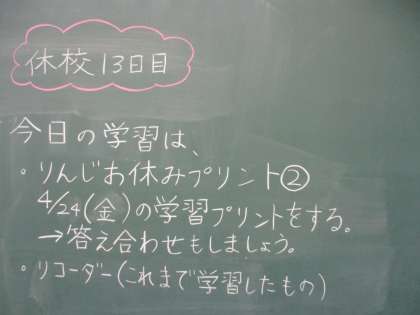 休校13日目
今日の学習は、
・りんじお休みプリント②
4/24(金)の学習プリントをする。
→答え合わせもしましょう。
・リコーダー(これまで学習したもの)